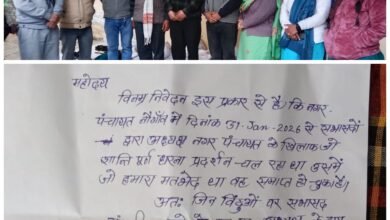 महोदय
विनम्र निवेदन इस प्रकार से है कि नगर
पंचायत नौगाँव में दिनांक 31-Jan-2026 से सभासदों
द्वारा अध्यक्ष नगर पंचायत के खिलाफ जो
शान्ति पूर्ण धरना प्रदर्शन चल रहा था उसमें
जो हमारा मतभेद था वह समाप्त हो चुका है।
अतः जिन बिंदुओं पर सभासद